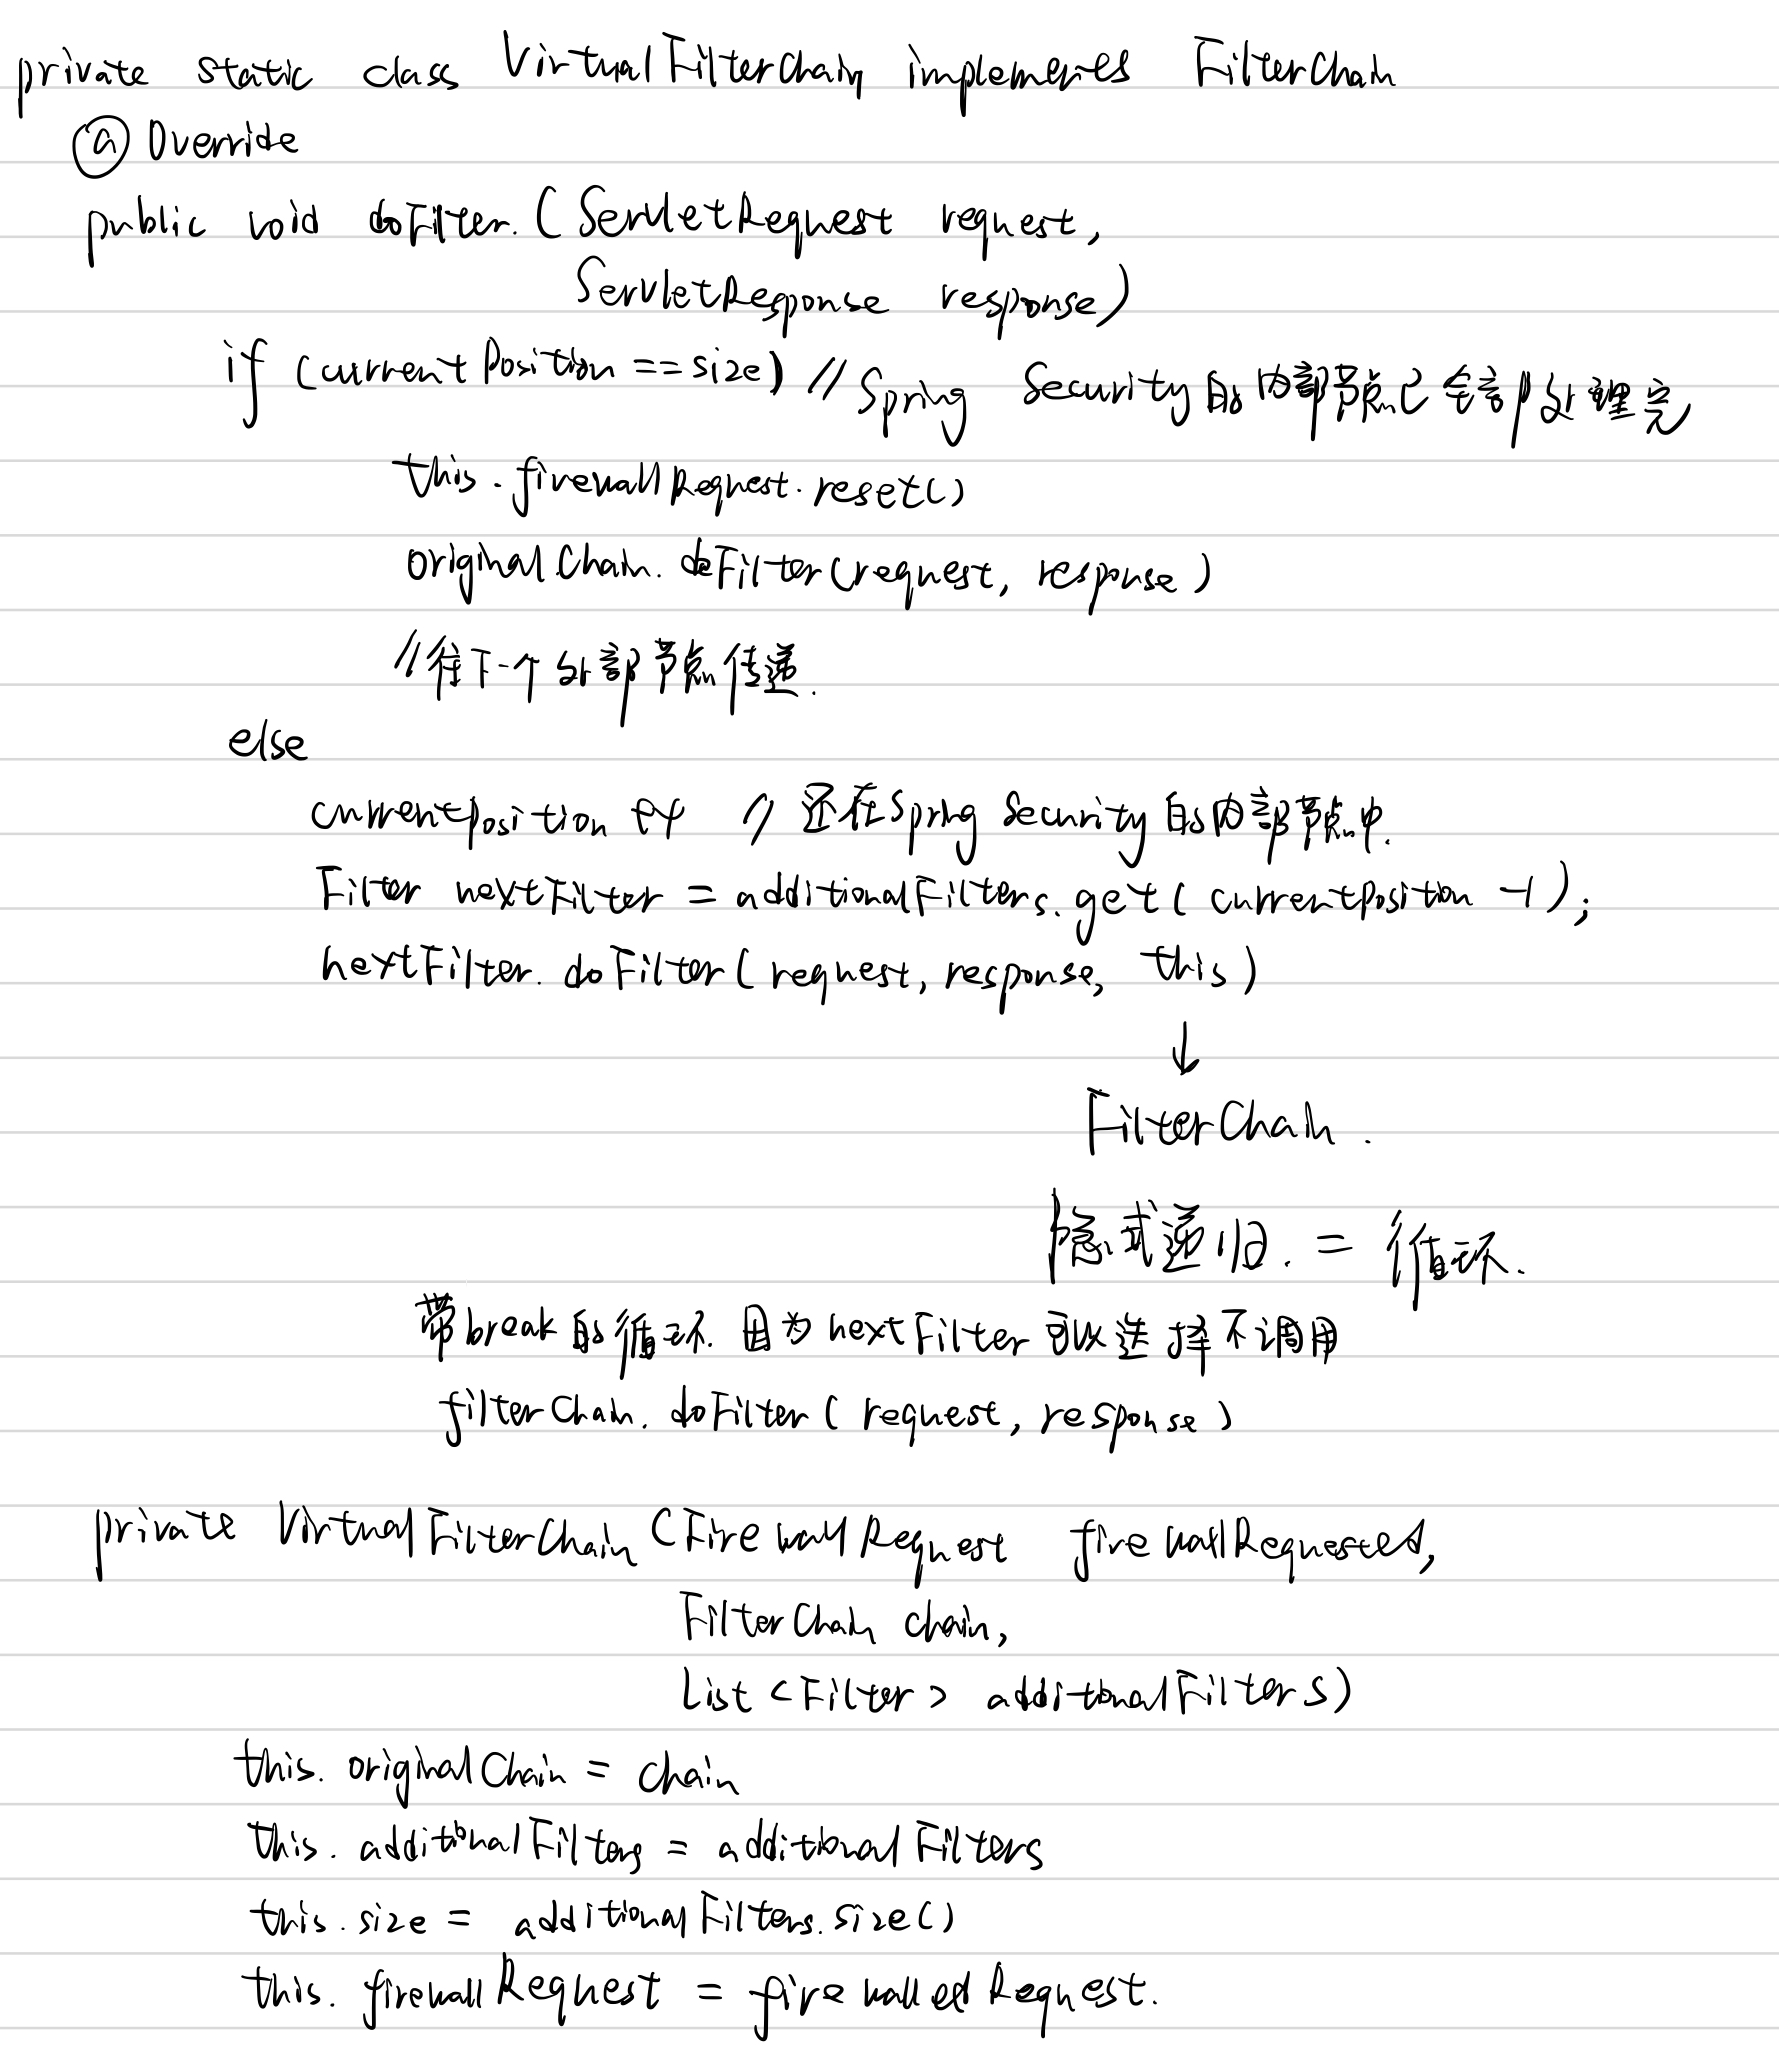 private static class VirtualFilterChain implements FilterChain
@Override
public void doFilter.(ServletRequest request,
ServletResponse response)
if (currentPosition == size) // Spring Security的内部节点已全部处理完
this.firewallRequest.reset()
originalChain.doFilter(request, response)
//往下一个外部节点传递.
else
currentposition ++ // 还在Spring Security的内部节点中.
Filter nextFilter = additionalFilters.get(currentposition -1);
nextFilter.doFilter(request, response, this)
↓
FilterChain.
隐式递归. = 循环.
带break的循环. 因为nextFilter可以选择不调用
filterChain.doFilter(request, response)
private VirtualFilterChain (FirewallRequest firewallRequested,
FilterChain chain,
List <Filter> additionalFilters)
this.originalChain = chain
this.additionalFilters = additionalFilters
this.size = additionalFilters.size()
this.firewallRequest = firewalledRequest.